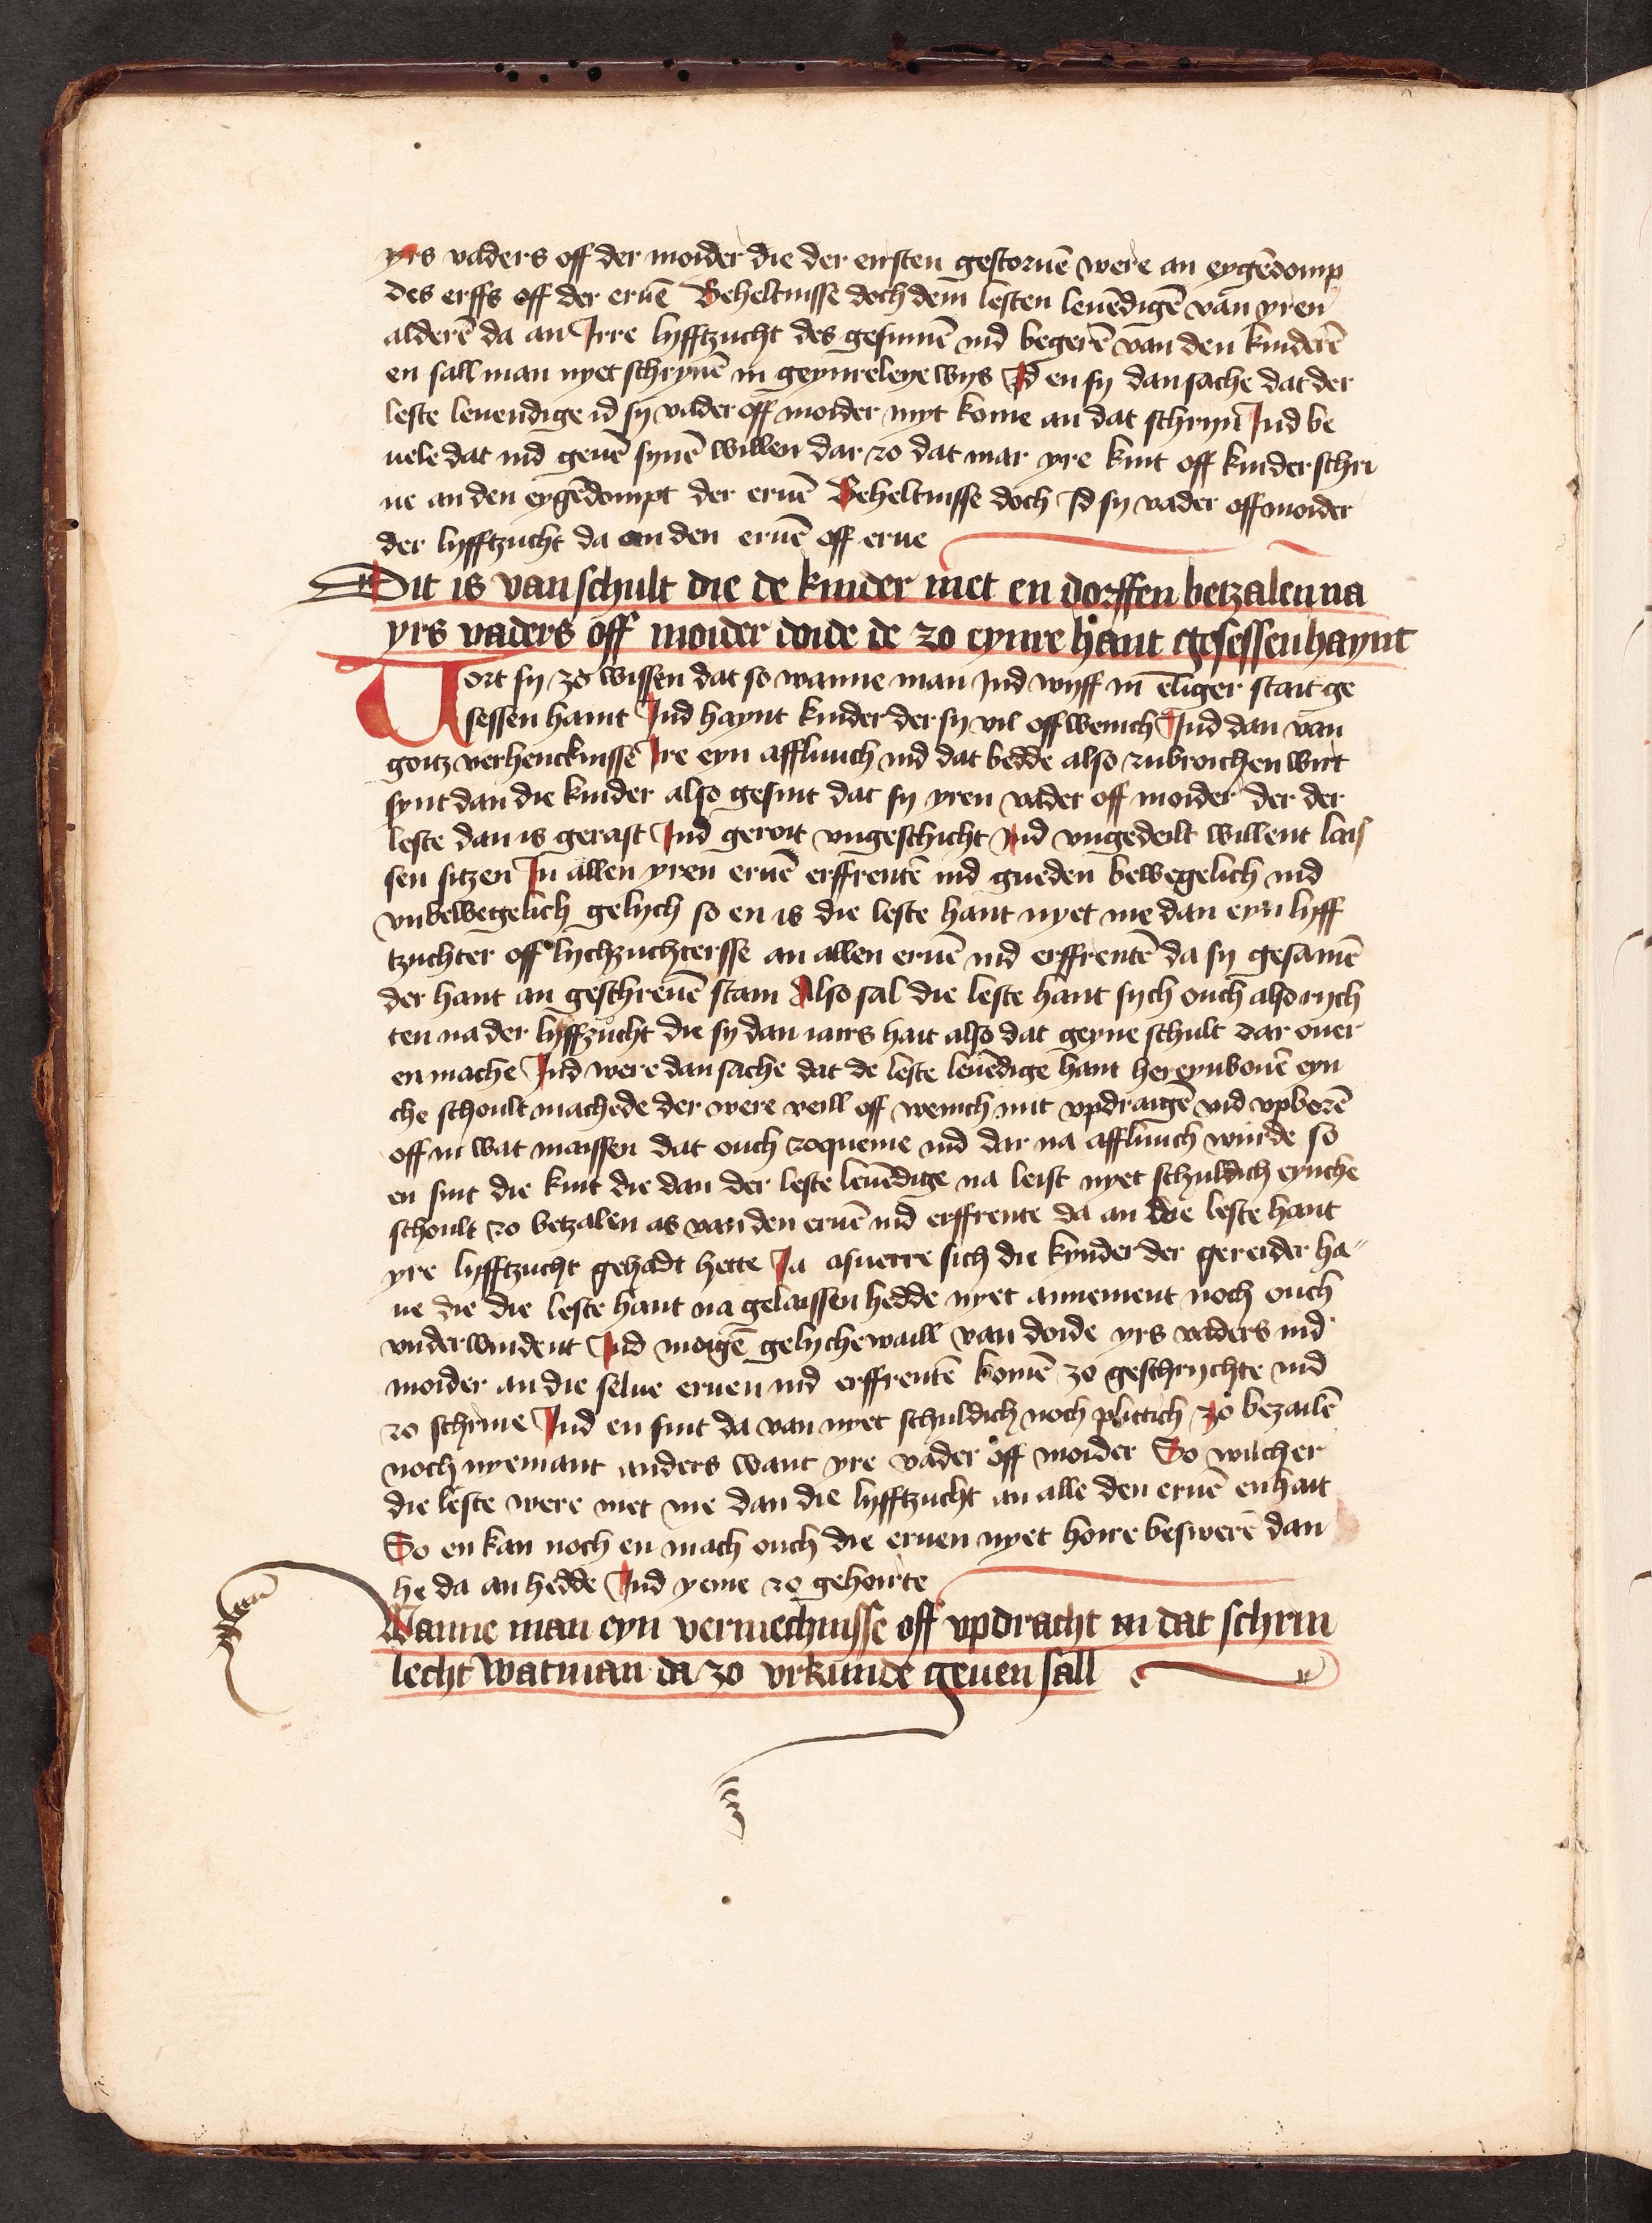 yrs vaders off der moider die der eirsten gestoruē were an eygēdomp
des erffs off der eruē Beheltnisse doch dem lesten leuēdigē van yren
alderē da an Irre lyfftzucht des gesinnē ind begerē van den kinderē
en sall man nyet schryuē in geynreleye wys Id en sy dan sache dat der
leste leuendige id sy vader off moider myt kome an dat schryn Ind be
uele dat ind geuē synē willen dar zo dat mar yre kint off kinder schri
ue an den eygēdompt der eruē Beheltnisse doch Id sy vader off moider
der lyfftzucht da an den eruē off erue
Dit is van schult die de kinder niet en dorffen betzalen na
yrs vaders off moider doide de zo eynre hant gesessen haynt
Vort sy zo wissen dat so wanne man Ind wyff in eliger stait ge
sessen haint Ind haynt kinder der sy vil off wenich Ind dan van
goitz verhencknisse Ire eyn affliuich ind dat bedde also zubroichen wirt
synt dan die kinder also gesint dat sy yren vader off moider der der
leste dan is gerast Ind gerort vngeschicht Ind vngedeilt willent lais
sen sitzen In allen yren eruē erffrentē ind gueden bewegelich ind
vnbewegelich gelych so en is die leste hant nyet me dan eyn lyff
tzuchter off lychzuchtersse an allen eruē ind erffrentē da sy gesamē
der hant an geschreuē stain Also sal die leste hant sych ouch also rych
ten na der lyffzucht die sy dan iairs hait also dat geyne schult dar ouer
en mache Ind were dan sache dat de leste leuēdige hant her eynbouē eyn
che schoult machede der were veill off wenich mit vpdraigē vnd vpborē
off in wat maissen dat ouch zoqueme ind dar na affliuich wurde so
en sint die kint die dan der leste leuēdige na leist nyet schuldich eynche
schoult zo betzalen as van den eruē ind erffrente da an die leste hant
yre lyfftzucht gehadt hette Ja asuerre sich die kynder der gereider ha"
ue die die leste hant na gelaissen hedde nyet annement noch ouch
vnderwindent Ind moigē gelychewaill van doide yrs vaders ind
moider an die selue eruen ind erffrentē komē zo geschrychte ind
zo schrine Ind en sint da van nyet schuldich noch plittich zo bezailē
noch nyemant anders want yre vader off moider So wilcher
die leste were niet me dan die lyfftzucht an alle den eruē en hait
So en kan noch en mach ouch die eruen nyet hoire beswerē dan
he da an hedde Ind yeme zo gehoirte
Wanne man eyn vermechnisse off vpdracht in dat schrin
lecht wat man da zo vrkunde geuen sall